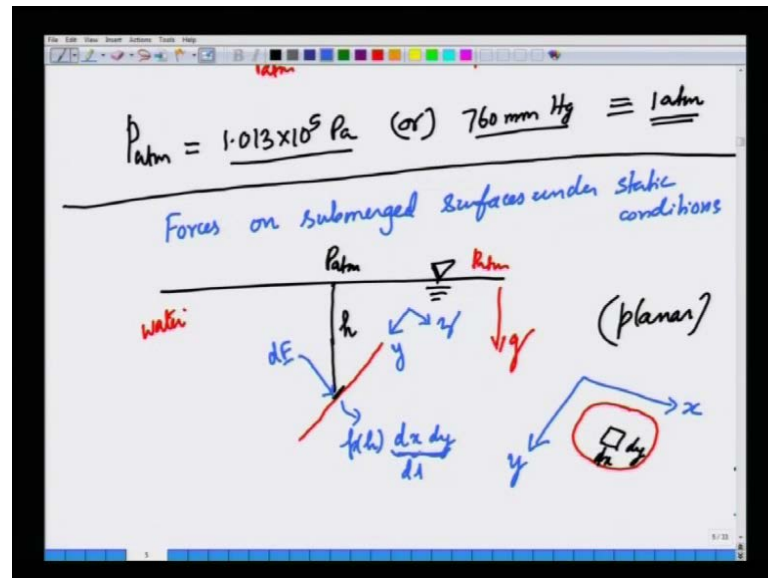 File Edit View Insert Actions Tools Help
Patm
Patm = 1.013×10⁵ Pa (or) 760 mm Hg ≡ 1 atm
Forces on submerged surfaces under static
conditions
Patm Patm
water
h
g
(planar)
dF
y
p(h) dx dy
dA
x
y
dx dy
5/33
5